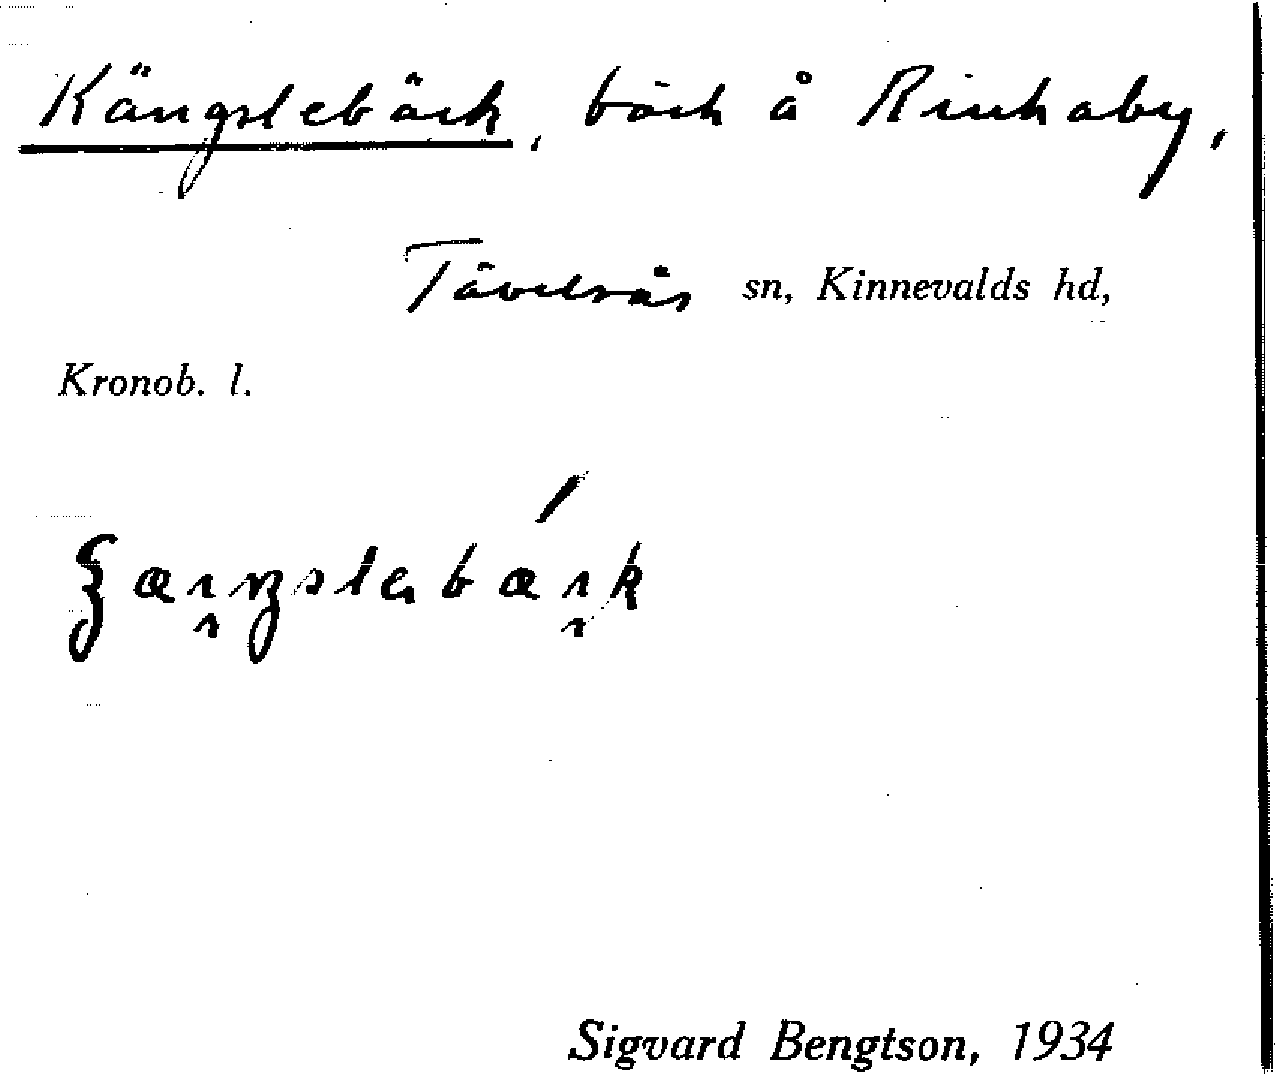 Kängslebäck, bäck å Rinkaby,
Tävelsås sn, Kinnevalds hd,
Kronob. l.
Sigvard Bengtson, 1934